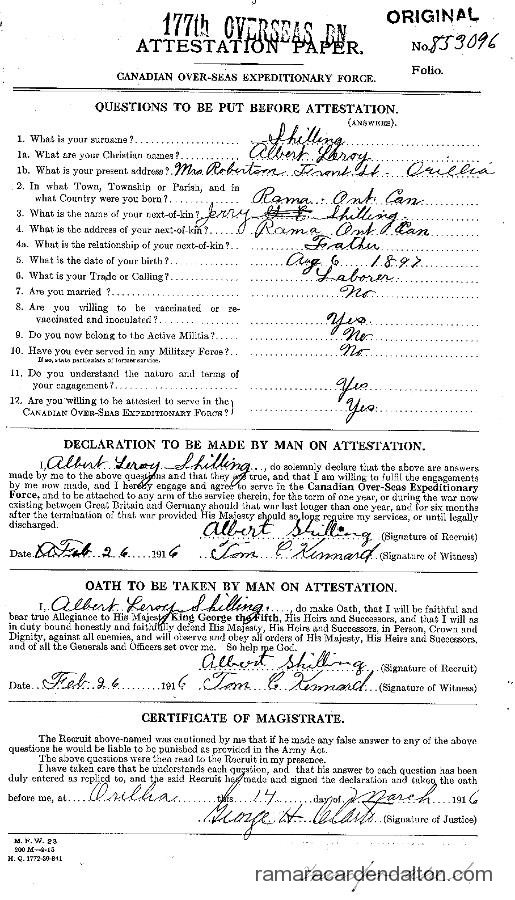 ORIGINAL
177th OVERSEAS BN
ATTESTATION PAPER.
No. 853096
Folio.
CANADIAN OVER-SEAS EXPEDITIONARY FORCE.
QUESTIONS TO BE PUT BEFORE ATTESTATION.
(ANSWERS).
1. What is your surname? Shilling
1a. What are your Christian names? Albert Leroy
1b. What is your present address? Mrs Robertson Front St. Orillia
2. In what Town, Township or Parish, and in
what Country were you born? Rama Ont. Can
3. What is the name of your next-of-kin? Jerry Shilling
4. What is the address of your next-of-kin? Rama Ont Can.
4a. What is the relationship of your next-of-kin? Father
5. What is the date of your birth? Aug 6 1897
6. What is your Trade or Calling? Laborer
7. Are you married? No
8. Are you willing to be vaccinated or re-
vaccinated and inoculated? Yes
9. Do you now belong to the Active Militia? No
10. Have you ever served in any Military Force? No
If so, state particulars of former service.
11. Do you understand the nature and terms of
your engagement? Yes
12. Are you willing to be attested to serve in the
CANADIAN OVER-SEAS EXPEDITIONARY FORCE? Yes
DECLARATION TO BE MADE BY MAN ON ATTESTATION.
I, Albert Leroy Shilling, do solemnly declare that the above are answers
made by me to the above questions and that they are true, and that I am willing to fulfil the engagements
by me now made, and I hereby engage and agree to serve in the Canadian Over-Seas Expeditionary
Force, and to be attached to any arm of the service therein, for the term of one year, or during the war now
existing between Great Britain and Germany should that war last longer than one year, and for six months
after the termination of that war provided His Majesty should so long require my services, or until legally
discharged.
Albert Shilling (Signature of Recruit)
Date Feb 26 1916 Tom C Kennard (Signature of Witness)
OATH TO BE TAKEN BY MAN ON ATTESTATION.
I, Albert Leroy Shilling, do make Oath, that I will be faithful and
bear true Allegiance to His Majesty King George the Fifth, His Heirs and Successors, and that I will as
in duty bound honestly and faithfully defend His Majesty, His Heirs and Successors, in Person, Crown and
Dignity, against all enemies, and will observe and obey all orders of His Majesty, His Heirs and Successors,
and of all the Generals and Officers set over me. So help me God.
Albert Shilling (Signature of Recruit)
Date Feb 26 1916 Tom C Kennard (Signature of Witness)
CERTIFICATE OF MAGISTRATE.
The Recruit above-named was cautioned by me that if he made any false answer to any of the above
questions he would be liable to be punished as provided in the Army Act.
The above questions were then read to the Recruit in my presence.
I have taken care that he understands each question, and that his answer to each question has been
duly entered as replied to, and the said Recruit has made and signed the declaration and taken the oath
before me, at Orillia this 14 day of March 1916
George H Clark (Signature of Justice)
M. F. W. 23
200 M-8-15
H. Q. 1772-39-841
ramaracardendalton.com